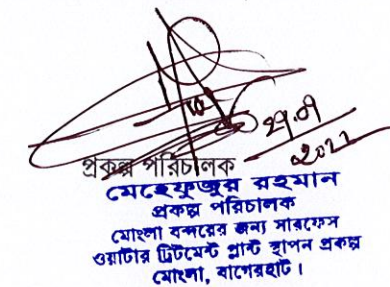 ২৭.০৭
২০২২
প্রকল্প পরিচালক
মেহেফুজুর রহমান
প্রকল্প পরিচালক
মোংলা বন্দরের জন্য সারফেস
ওয়াটার ট্রিটমেন্ট প্লান্ট স্থাপন প্রকল্প
মোংলা, বাগেরহাট।